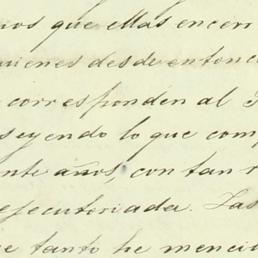 nos que ellas encerr
uienes desde entonc
corresponden al
seyendo lo que com
nte años, con tan
ejecutoriada. Las
e tanto he menci